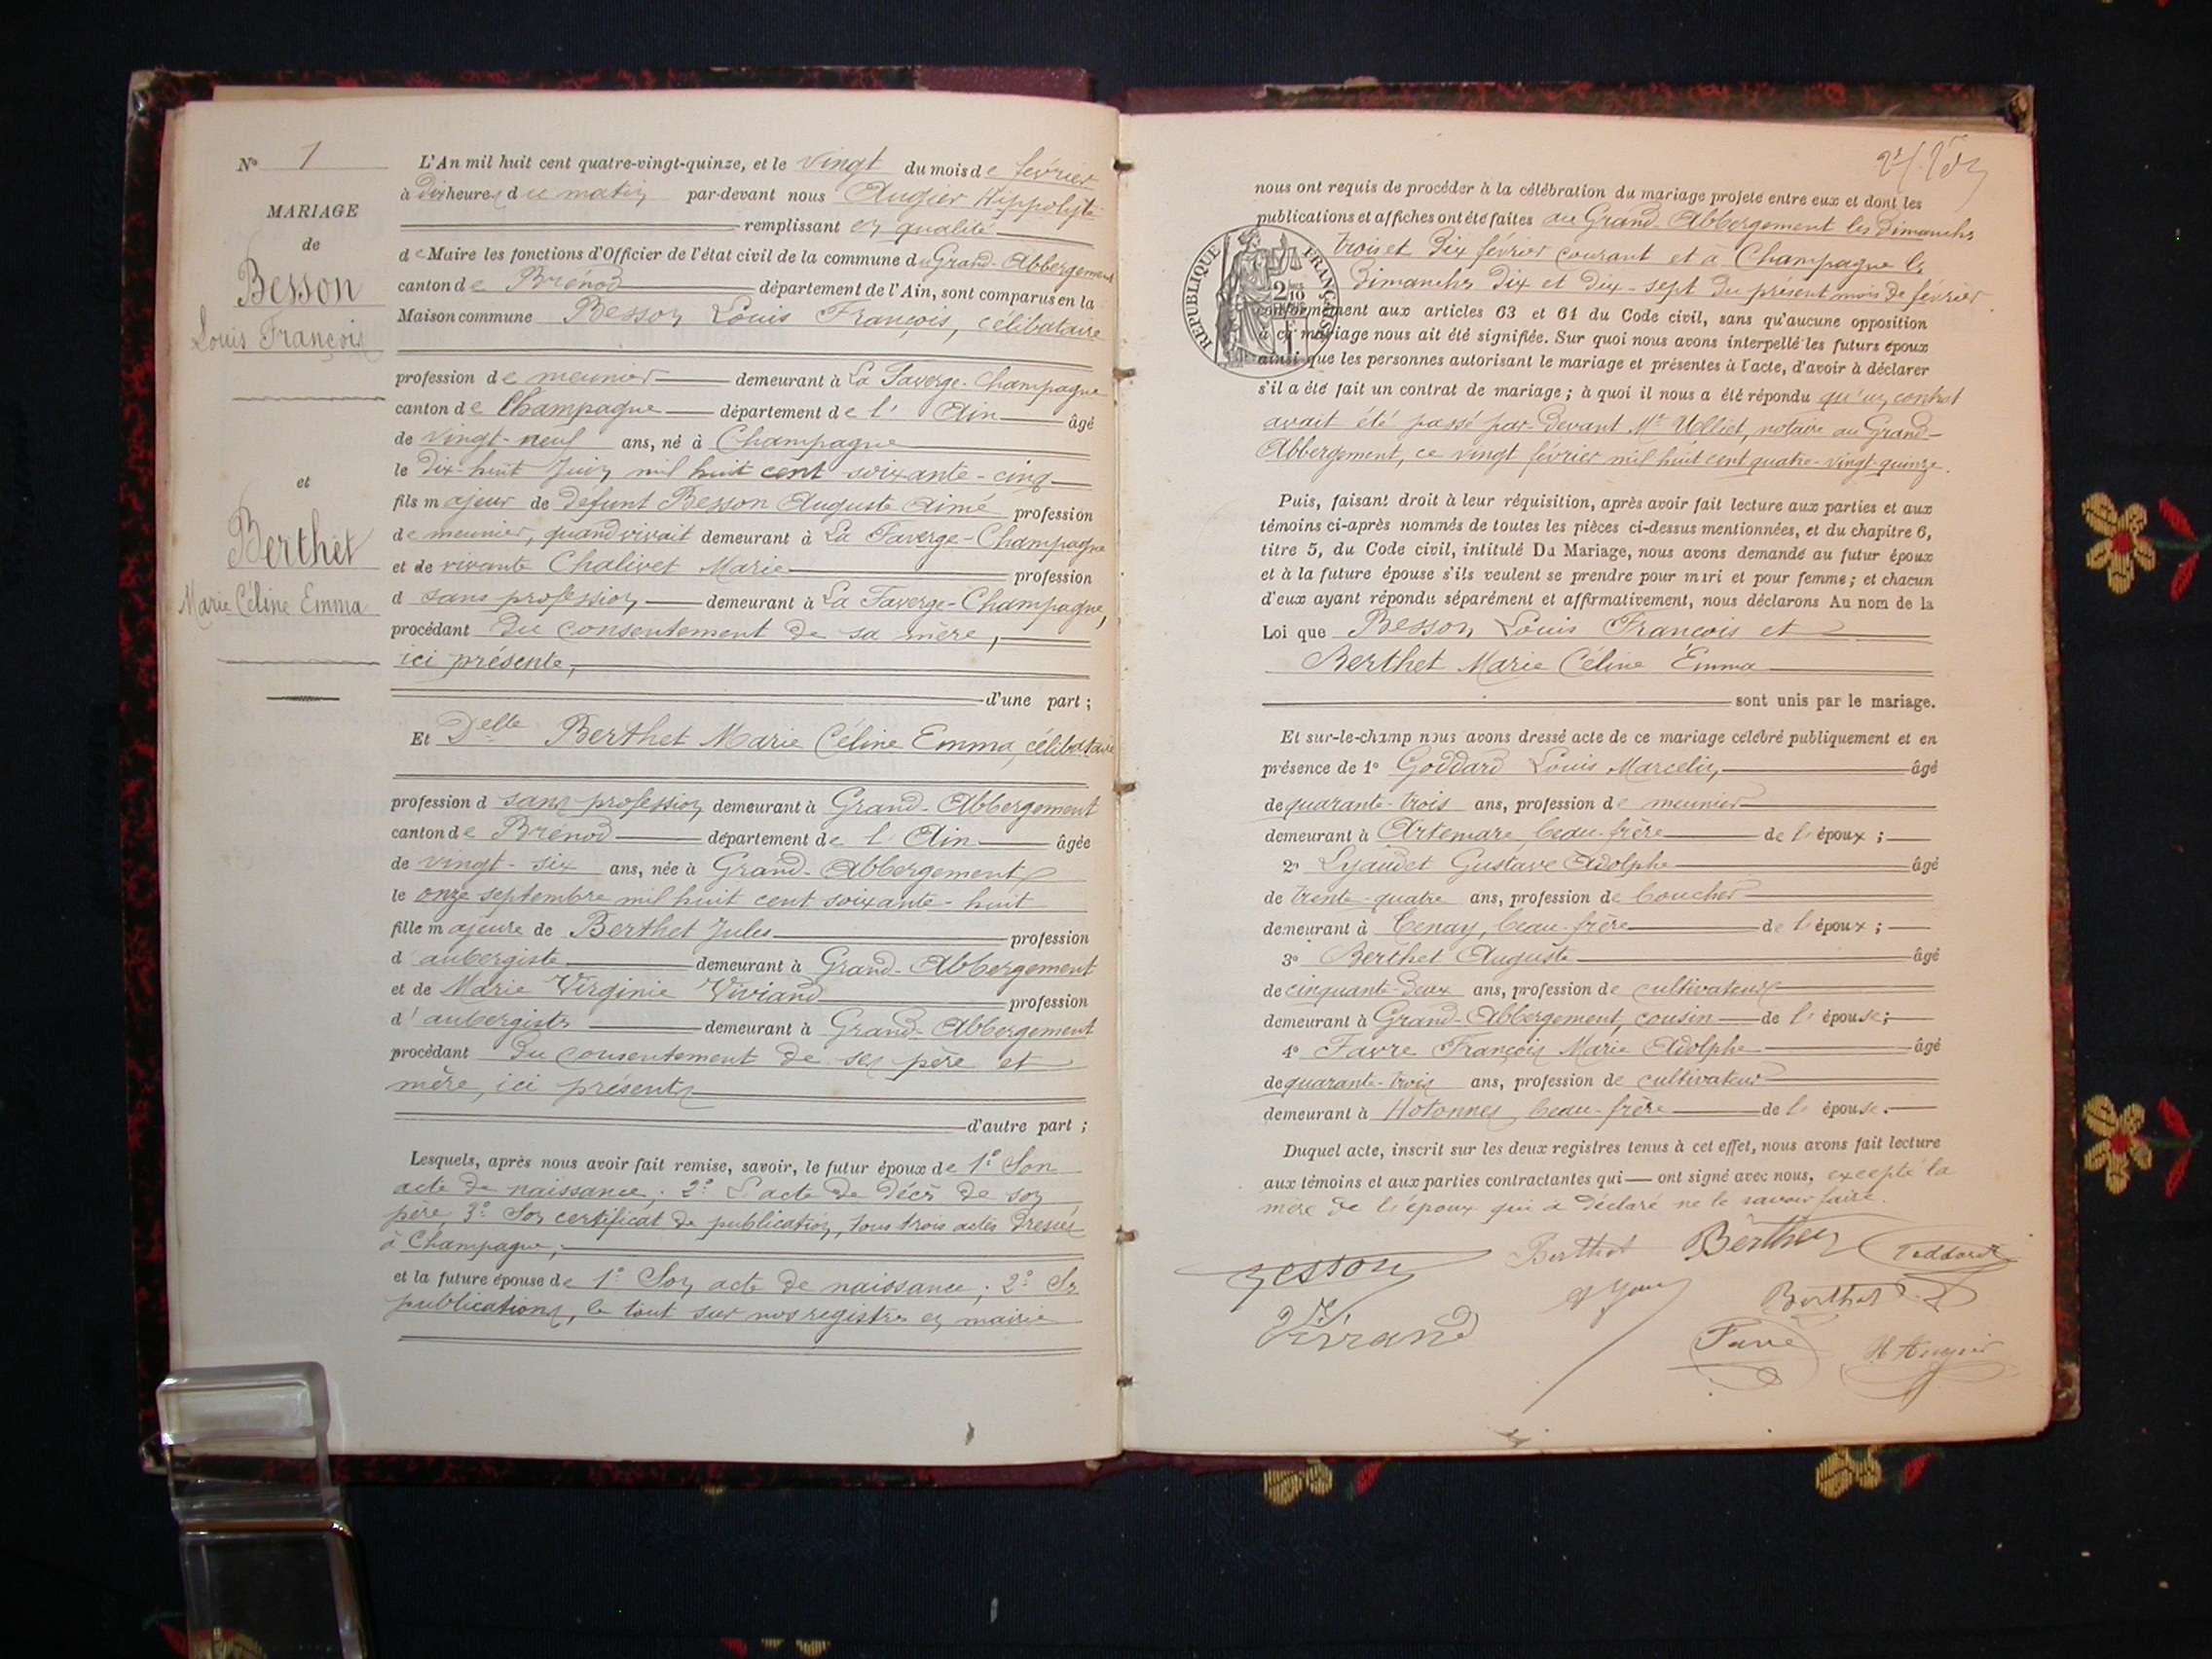 N° 1
MARIAGE
de
Besson
Louis François
et
Berthet
Marie Céline Emma
L'An mil huit cent quatre-vingt-quinze, et le vingt du mois de février
à dix heures du matin par-devant nous Augier Hippolyte
remplissant en qualité
de Maire les fonctions d'Officier de l'état civil de la commune du Grand-Abbergement
canton de Brénod département de l'Ain, sont comparus en la
Maison commune Besson Louis François, célibataire
profession de meunier demeurant à La Faverge-Champagne
canton de Champagne département de l'Ain âgé
de vingt-neuf ans, né à Champagne
le dix-huit Juin mil huit cent soixante-cinq
fils majeur de defunt Besson Auguste Aimé profession
de meunier, quand vivait demeurant à La Faverge-Champagne
et de vivante Chalivet Marie profession
d sans profession demeurant à La Faverge-Champagne,
procédant du consentement de sa mère,
ici présente,
d'une part ;
Et Delle Berthet Marie Céline Emma, célibataire
profession d sans profession demeurant à Grand-Abbergement
canton de Brénod département de l'Ain âgée
de vingt-six ans, née à Grand-Abbergement
le onze septembre mil huit cent soixante-huit
fille majeure de Berthet Jules profession
d'aubergiste demeurant à Grand-Abbergement
et de Marie Virginie Viviand profession
d'aubergiste demeurant à Grand-Abbergement
procédant du consentement de ses père et
mère, ici présents
d'autre part ;
Lesquels, après nous avoir fait remise, savoir, le futur époux de 1° Son
acte de naissance ; 2° L'acte de décès de son
père, 3° Son certificat de publication, tous trois actes dressés
à Champagne ;
et la future épouse de 1° Son acte de naissance ; 2° Ses
publications, le tout sur nos registres en mairie
nous ont requis de procéder à la célébration du mariage projeté entre eux et dont les
publications et affiches ont été faites au Grand-Abbergement les dimanches
trois et dix février courant et à Champagne les
dimanches dix et dix-sept du présent mois de février
RÉPUBLIQUE FRANÇAISE
conformément aux articles 63 et 64 du Code civil, sans qu'aucune opposition
à ce mariage nous ait été signifiée. Sur quoi nous avons interpellé les futurs époux
ainsi que les personnes autorisant le mariage et présentes à l'acte, d'avoir à déclarer
s'il a été fait un contrat de mariage ; à quoi il nous a été répondu qu'un contrat
avait été passé par-devant Me Ulliet, notaire au Grand-
Abbergement, ce vingt février mil huit cent quatre-vingt-quinze.
Puis, faisant droit à leur réquisition, après avoir fait lecture aux parties et aux
témoins ci-après nommés de toutes les pièces ci-dessus mentionnées, et du chapitre 6,
titre 5, du Code civil, intitulé Du Mariage, nous avons demandé au futur époux
et à la future épouse s'ils veulent se prendre pour mari et pour femme ; et chacun
d'eux ayant répondu séparément et affirmativement, nous déclarons Au nom de la
Loi que Besson Louis François et
Berthet Marie Céline Emma
sont unis par le mariage.
Et sur-le-champ nous avons dressé acte de ce mariage célébré publiquement et en
présence de 1° Goddard Louis Marcelin, âgé
de quarante-trois ans, profession de meunier
demeurant à Artemare, beau-frère de l'époux ;
2° Lyaudet Gustave Adolphe âgé
de trente-quatre ans, profession de boucher
demeurant à Tenay, beau-frère de l'époux ;
3° Berthet Auguste âgé
de cinquante-deux ans, profession de cultivateur
demeurant à Grand-Abbergement, cousin de l'épouse ;
4° Favre François Marie Adolphe âgé
de quarante-trois ans, profession de cultivateur
demeurant à Hotonnes, beau-frère de l'épouse.
Duquel acte, inscrit sur les deux registres tenus à cet effet, nous avons fait lecture
aux témoins et aux parties contractantes qui ont signé avec nous, excepté la
mère de l'époux qui a déclaré ne le savoir faire.
Besson Berthet Berthet Goddard
Berthet
Viviand Favre H Augier